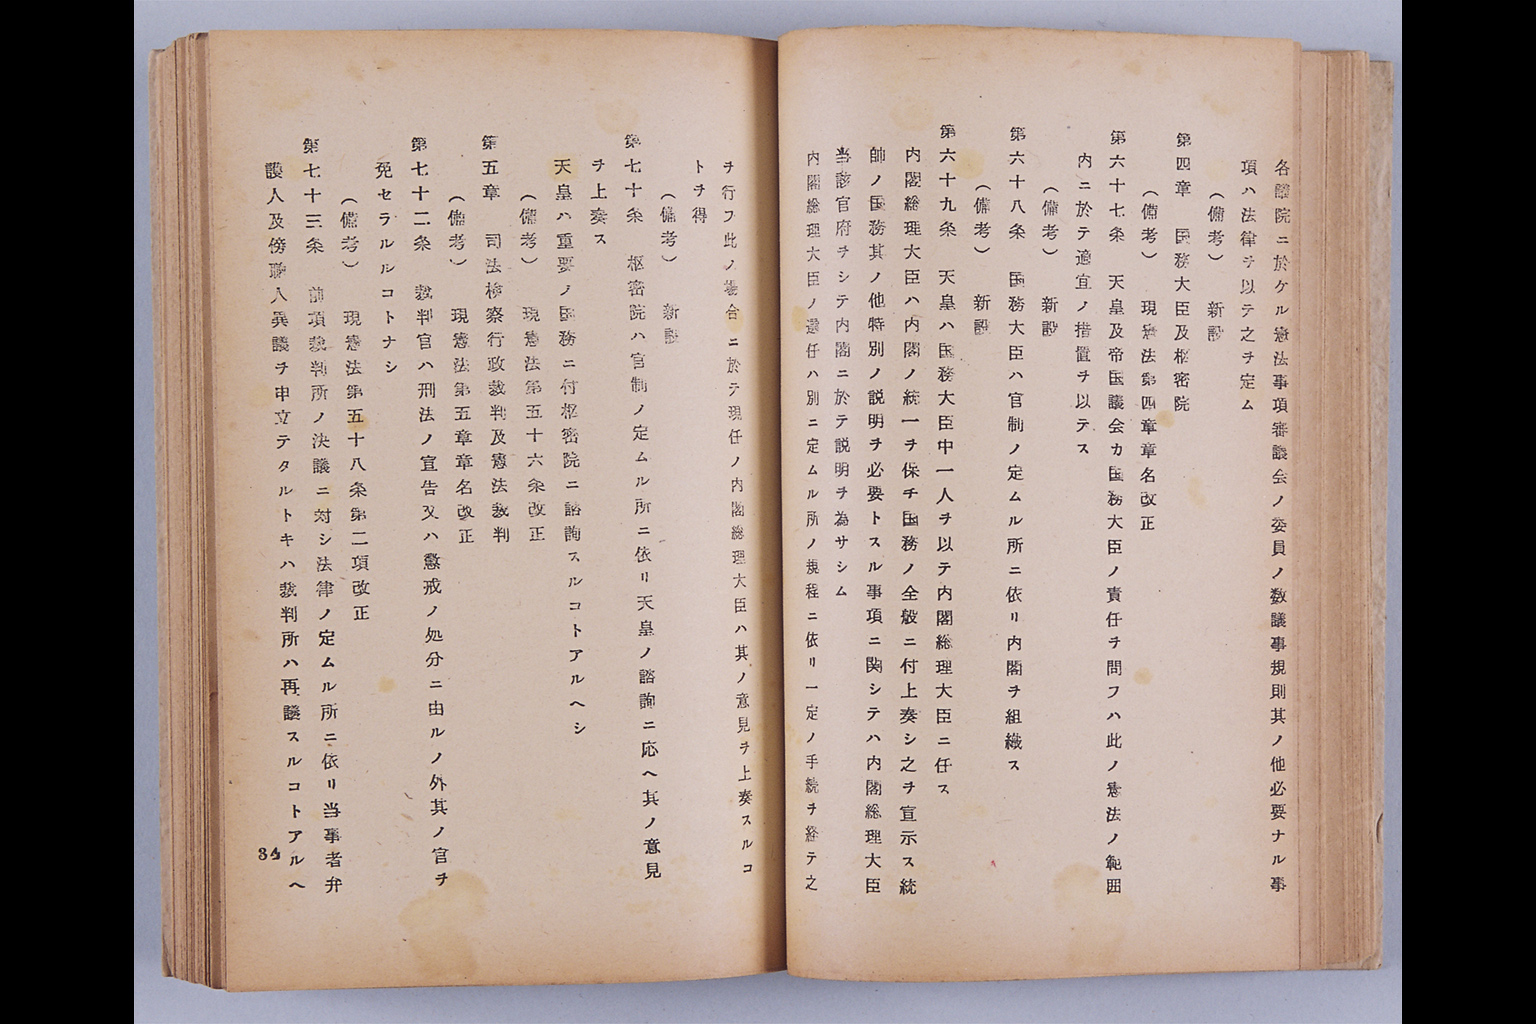 各議院ニ於ケル憲法事項審議会ノ委員ノ数議事規則其ノ他必要ナル事
項ハ法律ヲ以テ之ヲ定ム
(備考) 新設
第四章 国務大臣及枢密院
(備考) 現憲法第四章章名改正
第六十七条 天皇及帝国議会カ国務大臣ノ責任ヲ問フハ此ノ憲法ノ範囲
内ニ於テ適宜ノ措置ヲ以テス
(備考) 新設
第六十八条 国務大臣ハ官制ノ定ムル所ニ依リ内閣ヲ組織ス
(備考) 新設
第六十九条 天皇ハ国務大臣中一人ヲ以テ内閣総理大臣ニ任ス
内閣総理大臣ハ内閣ノ統一ヲ保チ国務ノ全般ニ付上奏シ之ヲ宣示ス統
帥ノ国務其ノ他特別ノ説明ヲ必要トスル事項ニ関シテハ内閣総理大臣
当該官府ヲシテ内閣ニ於テ説明ヲ為サシム
内閣総理大臣ノ選任ハ別ニ定ムル所ノ規程ニ依リ一定ノ手続ヲ経テ之
ヲ行フ此ノ場合ニ於テ現任ノ内閣総理大臣ハ其ノ意見ヲ上奏スルコ
トヲ得
(備考) 新設
第七十条 枢密院ハ官制ノ定ムル所ニ依リ天皇ノ諮詢ニ応ヘ其ノ意見
ヲ上奏ス
天皇ハ重要ノ国務ニ付枢密院ニ諮詢スルコトアルヘシ
(備考) 現憲法第五十六条改正
第五章 司法検察行政裁判及憲法裁判
(備考) 現憲法第五章章名改正
第七十二条 裁判官ハ刑法ノ宣告又ハ懲戒ノ処分ニ由ルノ外其ノ官ヲ
免セラルルコトナシ
(備考) 現憲法第五十八条第二項改正
第七十三条 前項裁判所ノ決議ニ対シ法律ノ定ムル所ニ依リ当事者弁
護人及傍聴人異議ヲ申立テタルトキハ裁判所ハ再議スルコトアルヘ
34